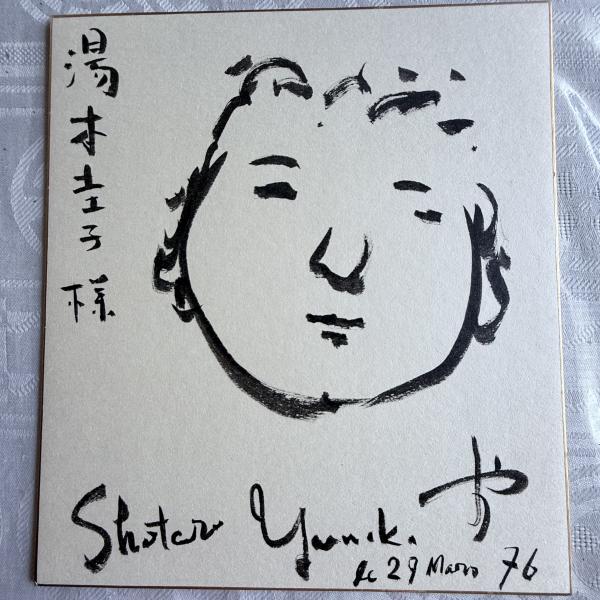 湯木圭子様
Shotaro Yasuoka や
le 29 Mars 76